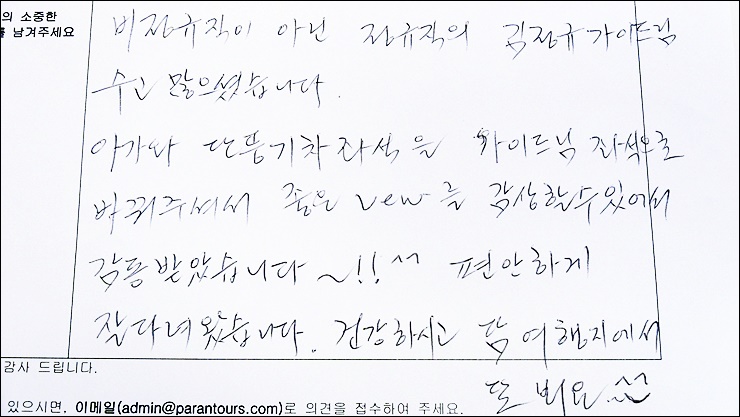 의 소중한
를 남겨주세요
비정규직이 아닌 정규직의 김정규가이드님
수고 많으셨습니다.
아가와 단풍기차좌석을 가이드님 좌석으로
바꿔주셔서 좋은 view를 감상할수있어서
감동받았습니다 ~!! ^^ 편안하게
잘다녀왔습니다. 건강하시고 담 여행지에서
또 봐요. ^^
감사 드립니다.
있으시면, 이메일(admin@parantours.com)로 의견을 접수하여 주세요.